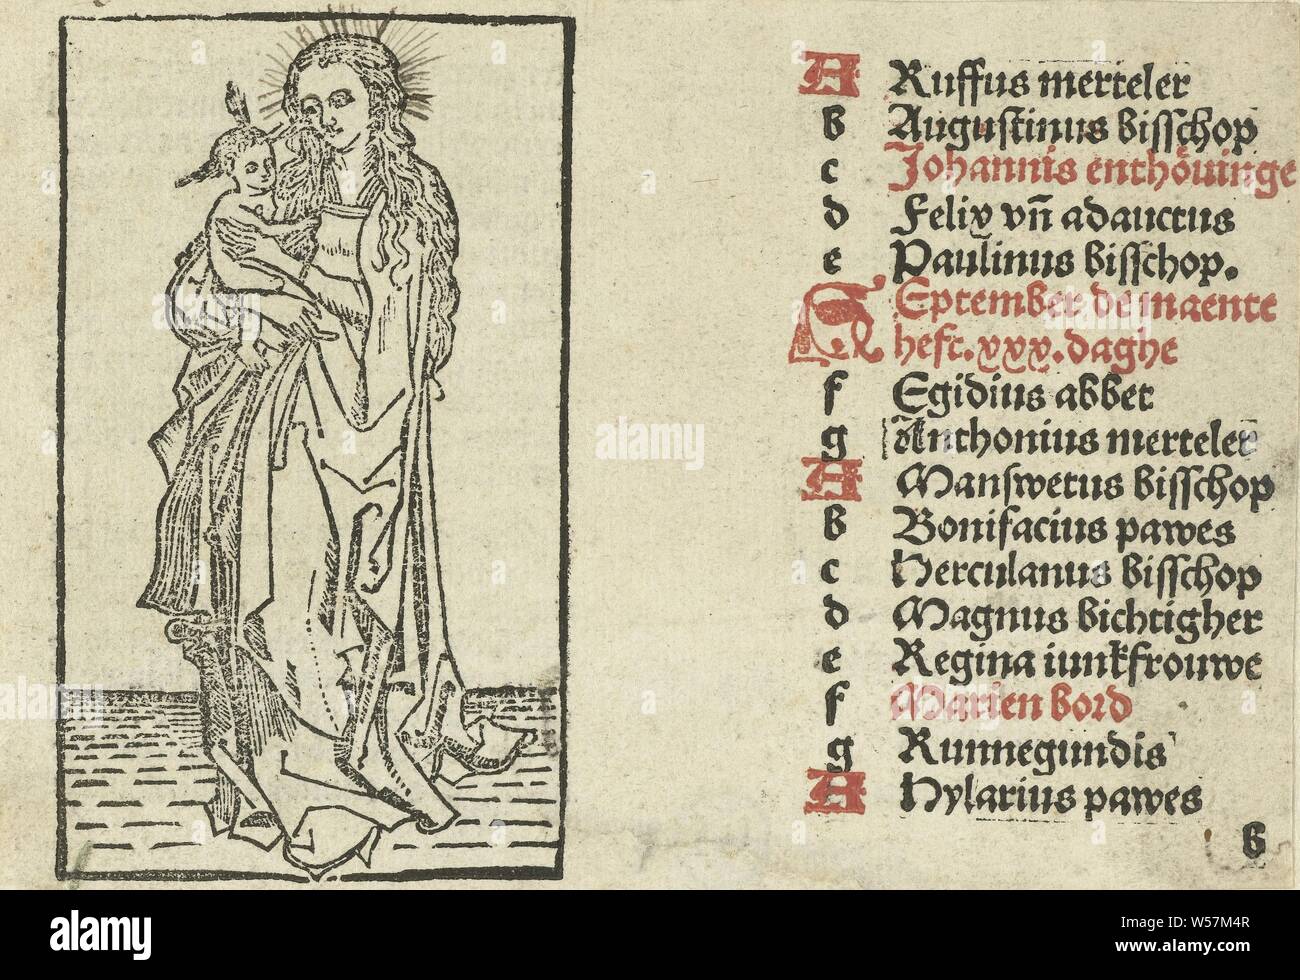 A Ruffus merteler
b Augustinus bisschop
c Johannis enthövinge
d Felix vn̄ adauctus
e Paulinus bisschop.
SEptember de maente
heft .xxx. daghe
f Egidius abbet
g Anthonius merteler
A Manswetus bisschop
b Bonifacius pawes
c Herculanus bisschop
d Magnus bichtigher
e Regina iunkfrouwe
f Marien bord
g Kunnegundis
A Hylarius pawes
b
alamy
alamy
alamy
Image ID: W57M4R
www.alamy.com